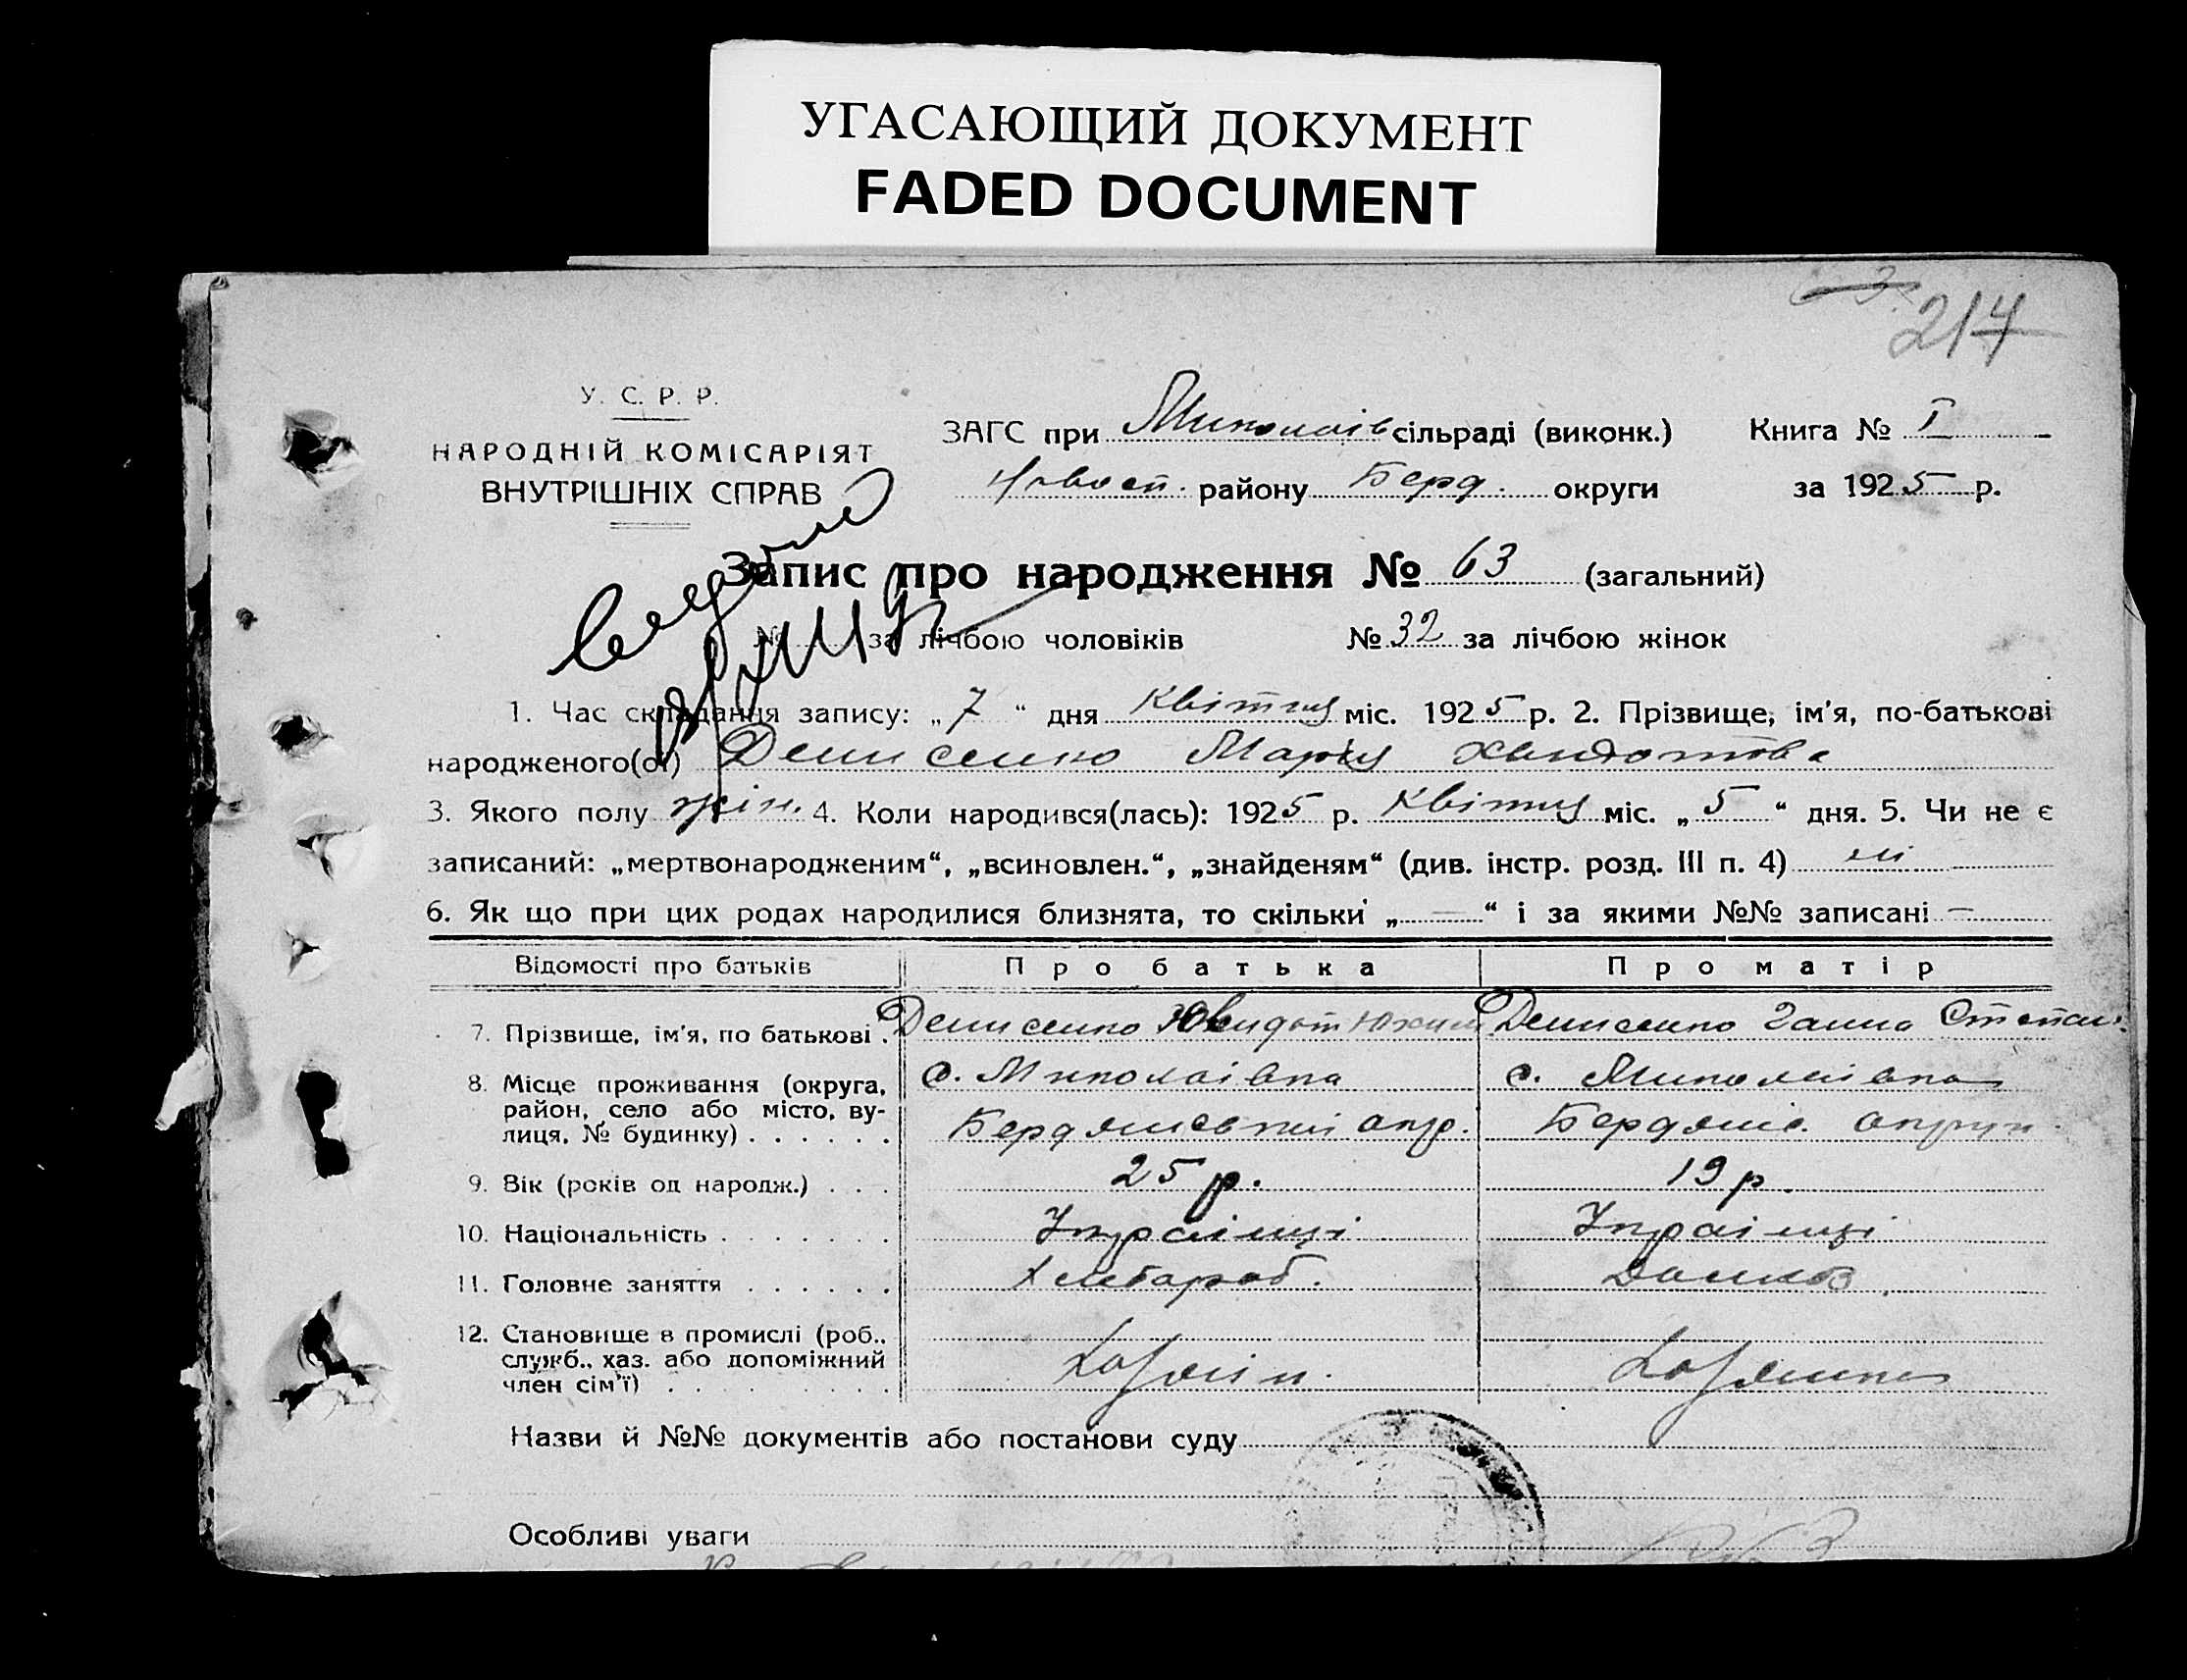 УГАСАЮЩИЙ ДОКУМЕНТ
FADED DOCUMENT
214
У. С. Р. Р.
НАРОДНІЙ КОМІСАРІЯТ
ВНУТРІШНІХ СПРАВ
ЗАГС при Миколаїв сільраді (виконк.) Книга № I
Новосп. району Берд. округи за 1925 р.
Запис про народження № 63 (загальний)
№ за лічбою чоловіків № 32 за лічбою жінок
1. Час складання запису: „7“ дня Квітня міс. 1925 р. 2. Прізвище, ім'я, по-батькові
народженого(ої) Денисенко Марія
3. Якого полу жін. 4. Коли народився(лась): 1925 р. Квітня міс. „5“ дня. 5. Чи не є
записаний: „мертвонародженим“, „всиновлен.“, „знайденям“ (див. інстр. розд. III п. 4) ні
6. Як що при цих родах народилися близнята, то скільки „—“ і за якими №№ записані —
Відомості про батьків Про батька Про матір
7. Прізвище, ім'я, по батькові . Денисенко Юхим Денисенко Ганна Степан.
8. Місце проживання (округа, район, село або місто, вулиця, № будинку) . . . . . . с. Миколаівка с. Миколаівка
Бердянської окр. Бердянс. округи
9. Вік (років од народж.) . . . 25 р. 19 р.
10. Національність . . . . . . . Українці Українці
11. Головне заняття . . . . . . Хлібороб. Домов
12. Становище в промислі (роб., служб., хаз. або допоміжний член сім'ї) . . . . . . . . . Хозяін. Хозяйка
Назви й №№ документів або постанови суду
Особливі уваги